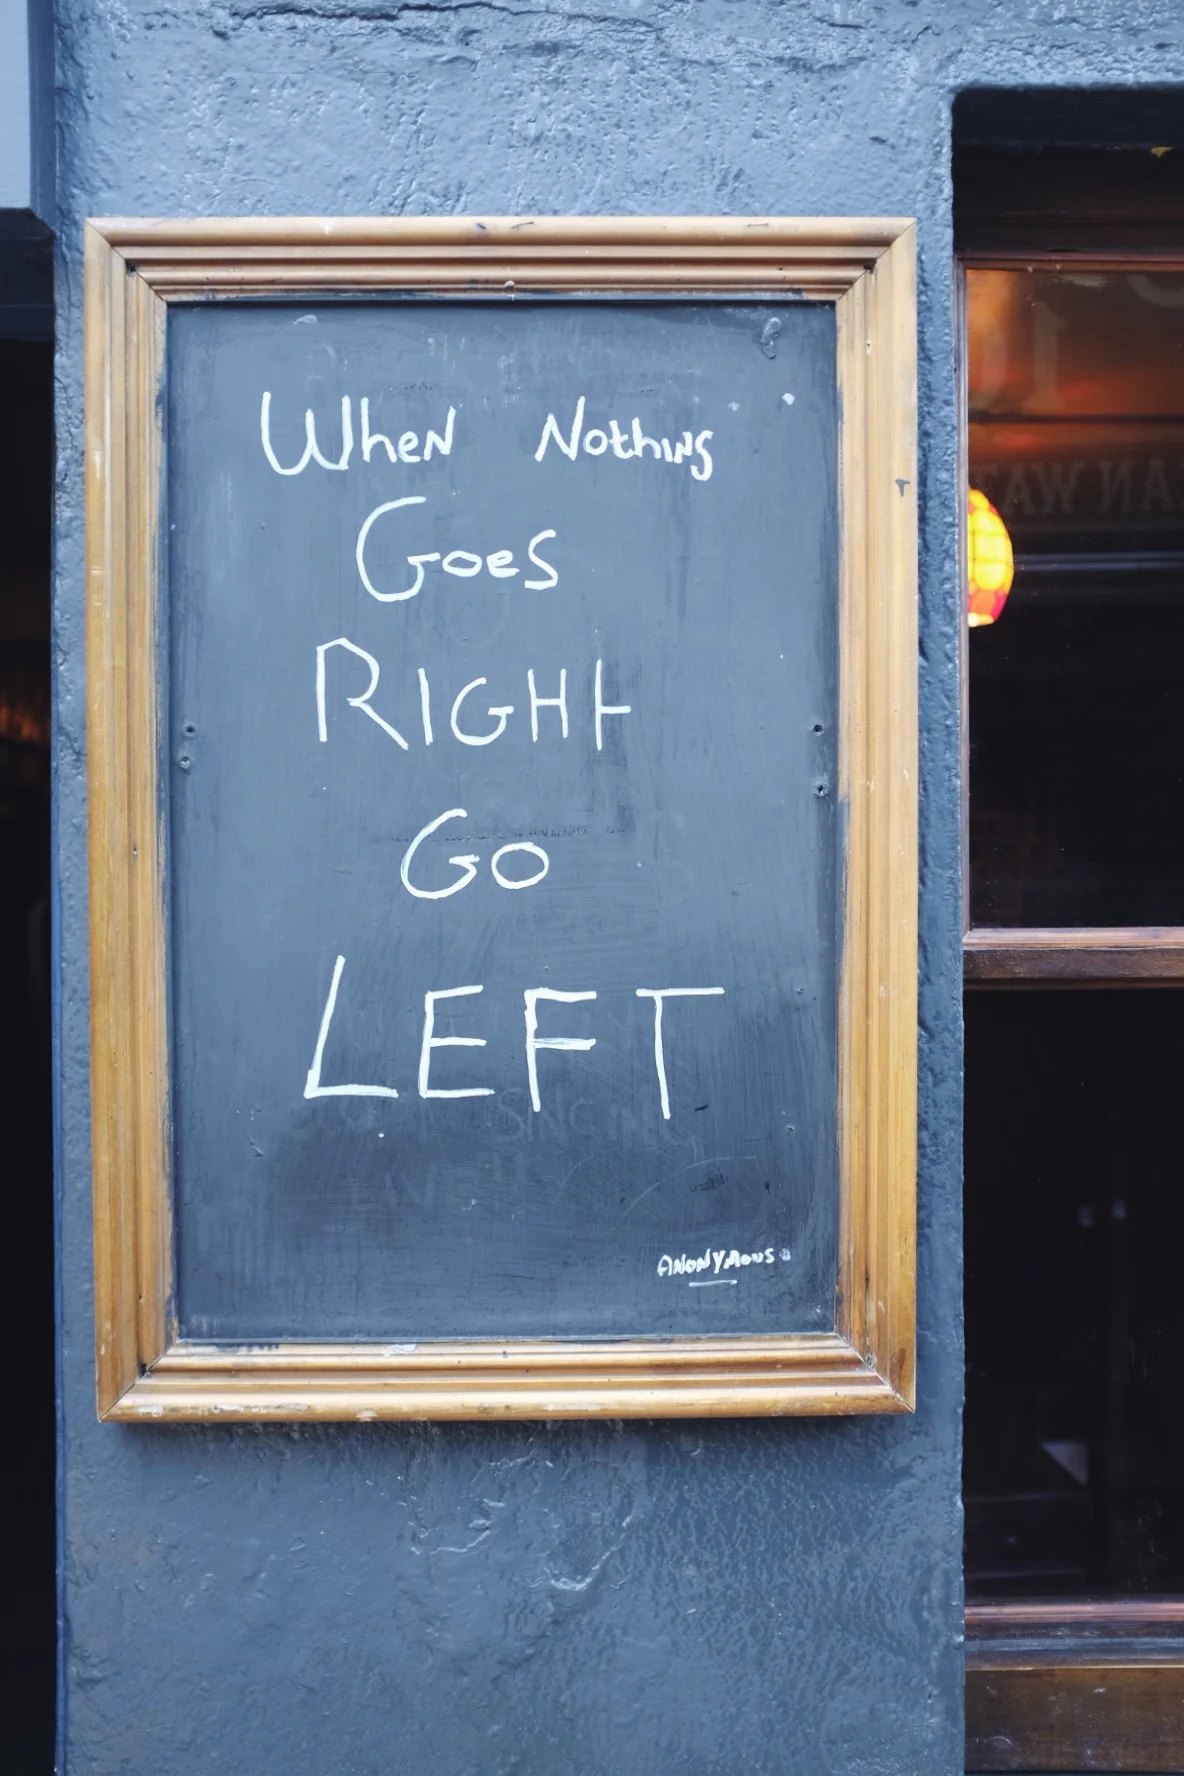 When Nothing
Goes
RIGHT
GO
LEFT
ANONYMOUS